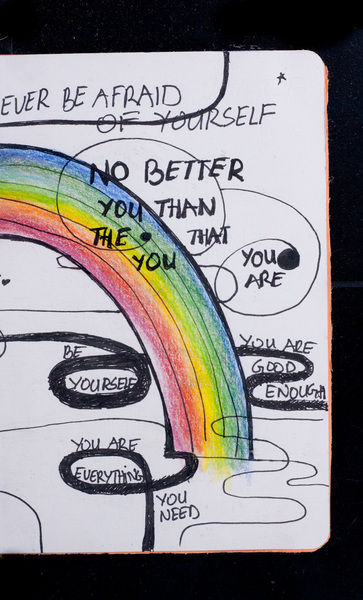 EVER BE AFRAID
OF YOURSELF
NO BETTER
YOU THAN
THE • THAT
YOU
YOU
ARE
BE
YOURSELF
YOU ARE
GOOD
ENOUGH
YOU ARE
EVERYTHING
YOU
NEED